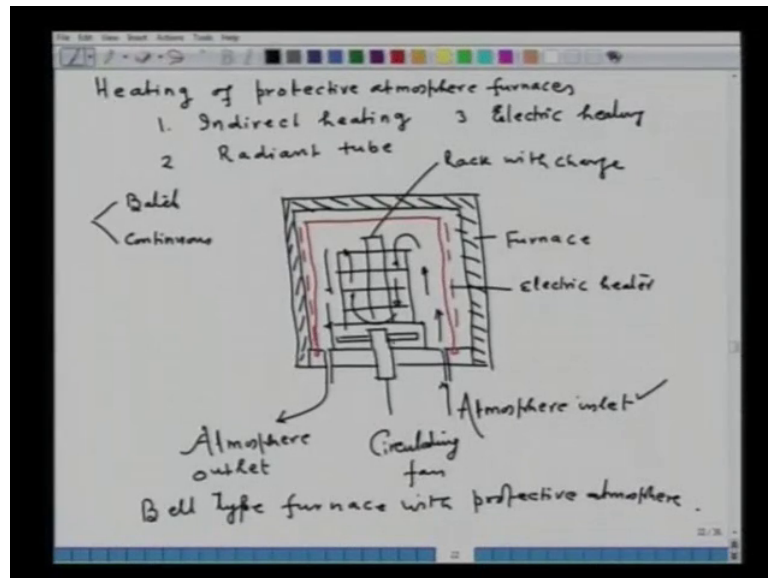 File Edit View Insert Actions Tools Help
Heating of protective atmosphere furnaces
1. Indirect heating 3 Electric heating
2 Radiant tube
Rack with charge
Batch
Continuous
Furnace
Electric heater
Atmosphere inlet
Atmosphere outlet
Circulating fan
Bell Type furnace with protective atmosphere.
22